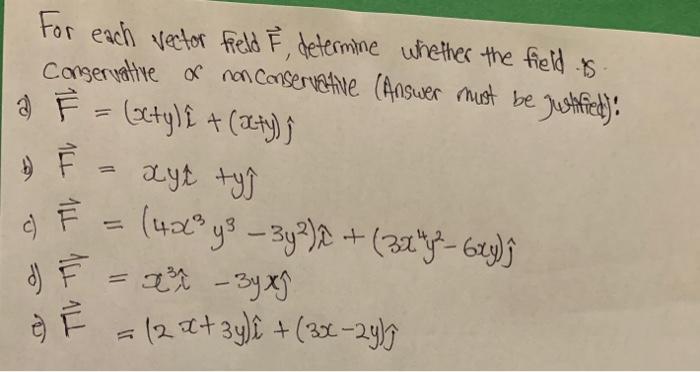 For each vector field F⃗, determine whether the field is
Conservative or nonconservative (Answer must be justified):
a) F⃗ = (x+y)î + (x+y)ĵ
b) F⃗ = xyî + yĵ
c) F⃗ = (4x³y³ - 3y²)î + (3x⁴y² - 6xy)ĵ
d) F⃗ = x³î - 3yxĵ
e) F⃗ = (2x + 3y)î + (3x - 2y)ĵ